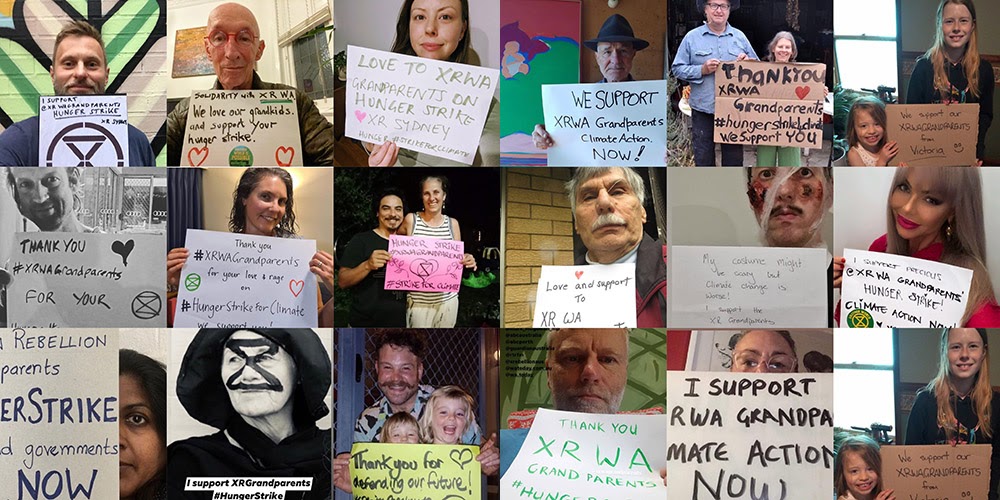 I SUPPORT
@XRWAGRANDPARENTS
HUNGER STRIKE
XR SYDNEY
SOLIDARITY with XR WA
We love our grandkids.
and support your
hunger strike.
LOVE TO XRWA
GRANDPARENTS ON
HUNGER STRIKE
XR SYDNEY
HUNGER #STRIKEFORCLIMATE
WE SUPPORT
XRWA Grandparents
Climate Action.
NOW!
THANK YOU
XRWA
Grandparents
#hungerstrikeclimate
we Support YOU
We support our
XRWAGRANDPARENTS
from
Victoria
THANK YOU
#XRWAGrandparents
FOR YOUR
Thank you
#XRWAGrandparents
for your love & rage
on
#HungerStrikeforClimate
We support you!
HUNGER STRIKE
#XRWAGRANDPARENTS
#STRIKE FOR CLIMATE
Love and support
To
XR WA
My costume might
be scary but
Climate change is
worse!
I support the
XR Grandparents
I SUPPORT PRECIOUS
@XRWA GRANDPARENTS'
HUNGER STRIKE!
CLIMATE ACTION NOW!
A REBELLION
parents
GERSTRIKE
d governments
NOW
I support XRGrandparents
#HungerStrike
Thank you for
defending our future!
@abcperth
@guardianaustralia
@watoday.com.au
@wa.today
THANK YOU
XR WA
GRAND PARENTS
# HUNGER
I SUPPORT
RWA GRANDPA
MATE ACTION
NOW
We support our
XRWAGRANDPARENTS
from